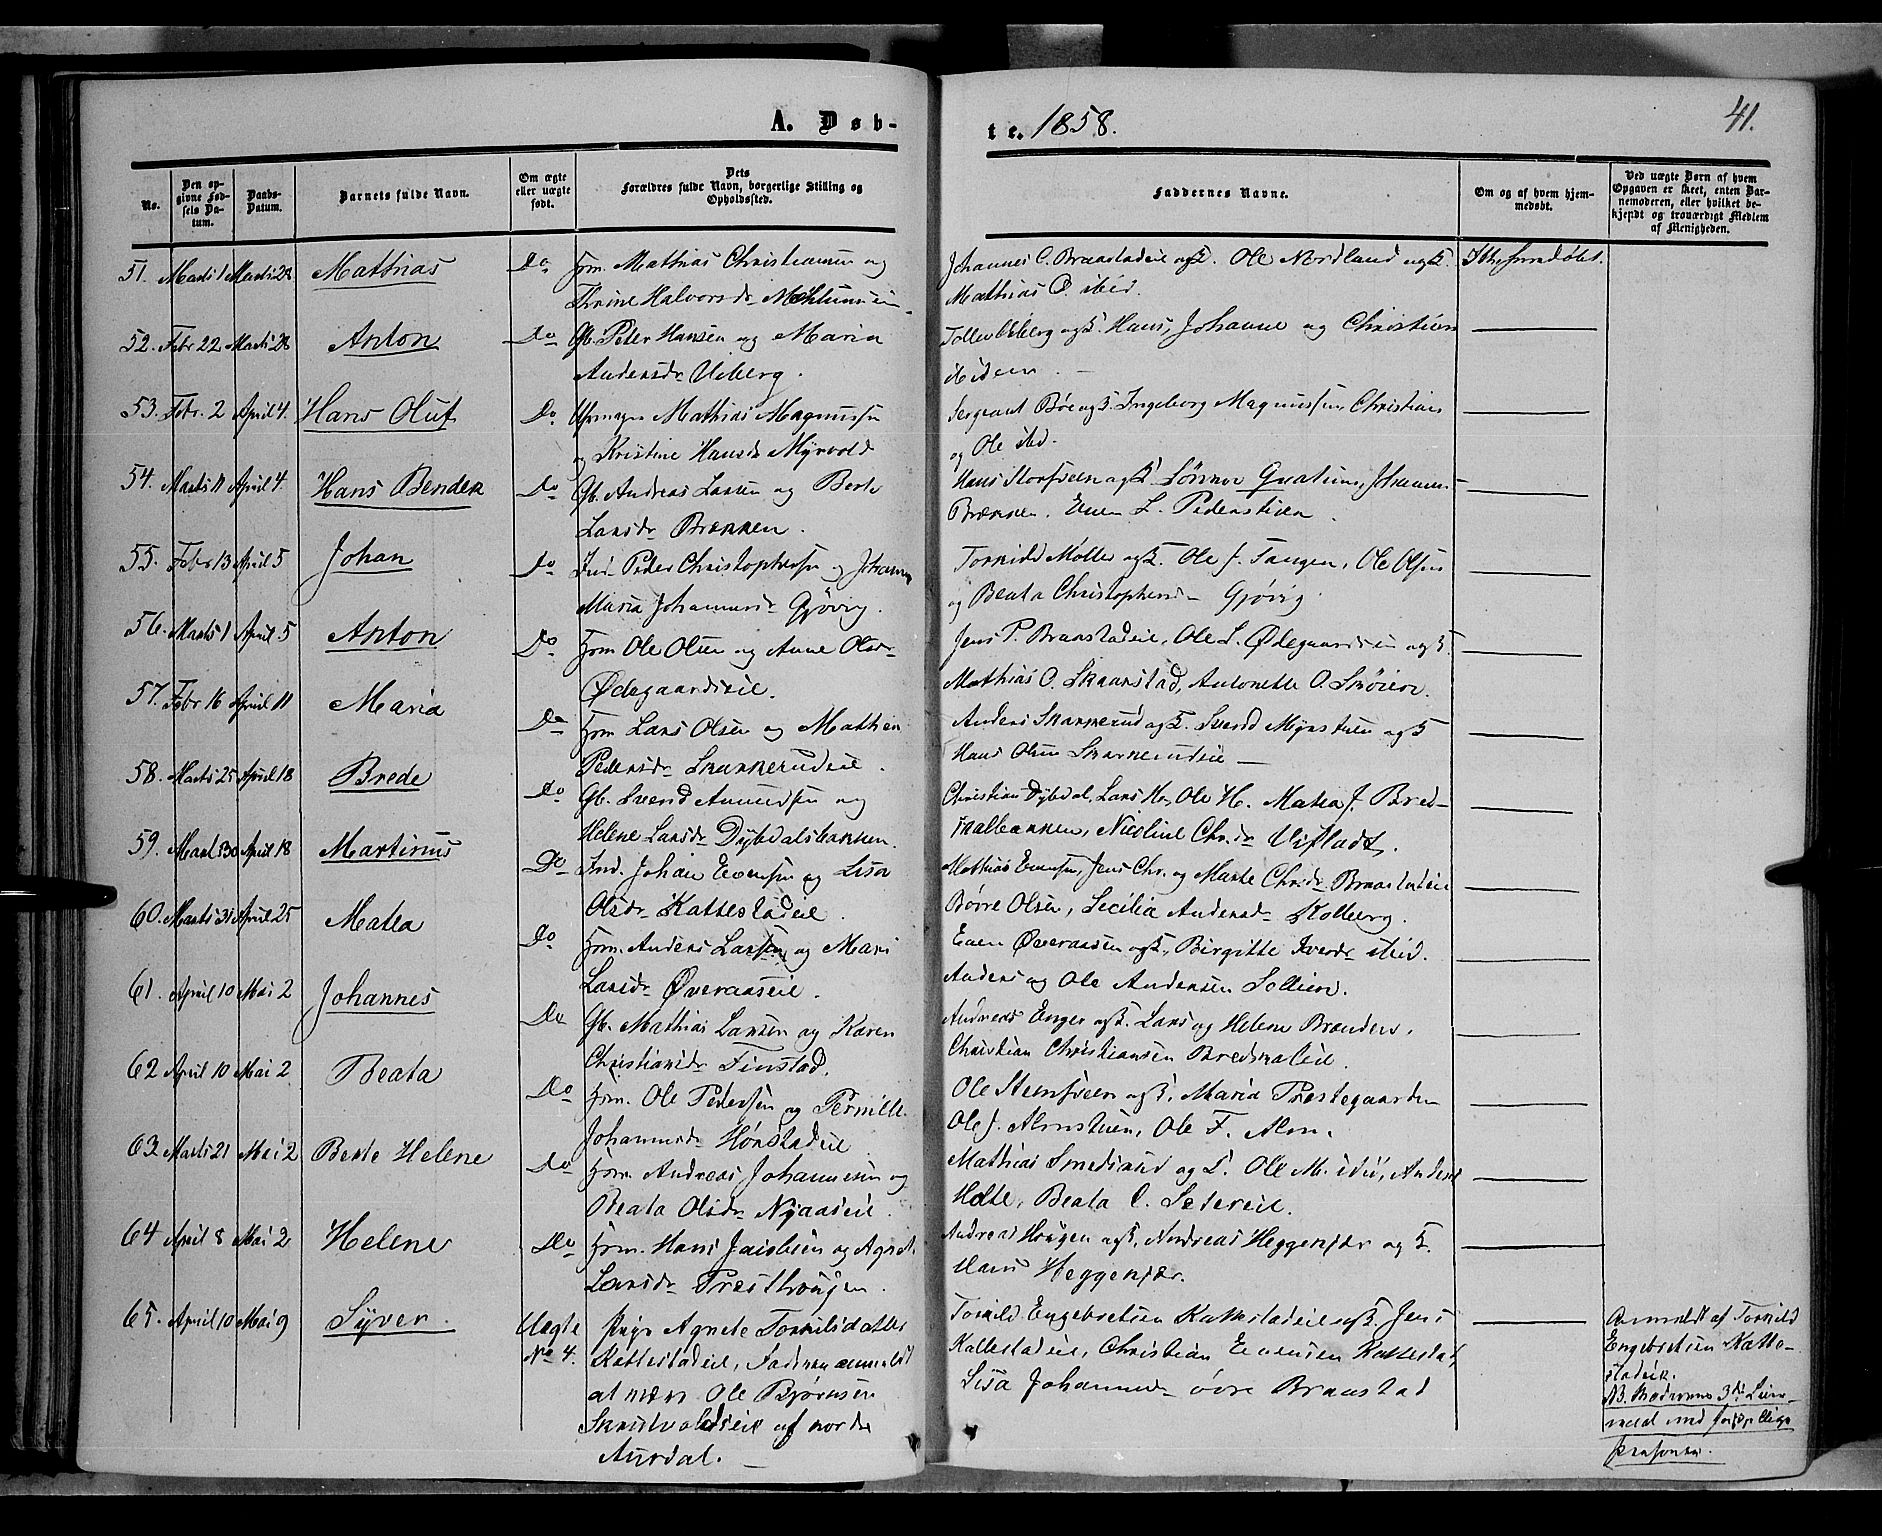 A. Døb-
te. 1858.
41.
No.
Den opgivne Fødsels Datum.
Daabs-Datum.
Barnets fulde Navn.
Om ægte eller uægte født.
Dets Forældres fulde Navn, borgerlige Stilling og Opholdssted.
Faddernes Navne.
Om og af hvem hjemmedøbt.
Ved uægte Børn af hvem Opgaven er skeet, enten Barnemoderen, eller hvilket bekjendt og troværdigt Medlem af Menigheden.
51. Marts 1 Marts 28 Mathias Do Hsm. Mathias Christiansen og
Thrine Halvorsdr Mæhlumseie
Johannes C. Braastadeie og K. Ole Nordland og K.
Mathias O. ibid.
Ikke hjemdøbt.
52. Febr 22 Marts 28 Anton Do Gb. Peter Hansen og Maria
Andersdr Viberg.
Hans, Johanne og Christian
ibidem.
53. Febr. 2 April 4. Hans Oluf Do Mathias Magnussen
og Kristine Hansdr Myrvold
Sergeant Bøe og K. Ingeborg Magnussen, Christian
og Ole ibd.
54. Marts 11 April 4. Hans Bender Do Gb. Andreas Larsen og Berte
Larsdr Brækken.
Hans og K. Johannes
Brækken, Even L. Pederstuen.
55. Febr 13 April 5 Johan Do Ind. Peder Christophersen og Johanne
Maria Johannesdr Gjøvig.
Torkild Møller og K. Ole J. Tangen, Ole Olsen
og Beata Christophersdr Gjøvig.
56. Marts 1 April 5 Anton Do Hsm Ole Olsen og Anne Olsdr
Ødegaardseie.
Jens P. Braastadeie, Ole L. Ødegaardseie og K.
Mathias O. Skaanstad, Antonette O. Skøien.
57. Febr 16 April 11 Maria Do Hsm Lars Olsen og Mathea
Pedersdr Skarkerudeie.
Anders Skarkerud og K. Svend Myrstuen og K
Hans Olsen Skarkerudeie
58. Marts 25 April 18 Brede Do Gb. Svend Amundsen og
Helene Larsdr Dybdalsbakken.
Christian Dybdal, Lars H., Ole H. Matea J. Bred-
skalbakken, Nicoline Chr.dr Vifstad.
59. Marts 30 April 18 Martinus Do Ind. Johan Evensen og Lisa
Olsdr Kattestadeie.
Mathias Evensen, Jens Chr. og Marte Chr.dr Braastadeie
Børre Olsen, Cecilia Andersdr Kolberg.
60. Marts 31 April 25 Matea Do Hsm. Anders Larsen og Mari
Larsdr Øveraaseie.
Even Øveraasen og K., Birgitte Iversdr ibid.
Anders og Ole Andersen Sollien.
61. April 10 Mai 2 Johannes Do Gb. Mathias Larsen og Karen
Christiansdr Finstad.
Andreas Enger og K. Lars og Helene Branden,
Christian Christiansen Bredskaleie.
62 April 10 Mai 2 Beata Do Hsm. Ole Pedersen og Pernille
Johannesdr Hønstadeie
Ole Stensveen og K, Maria Prestegaarden
Ole J. Almstuen, Ole F. Alm.
63 Marts 21 Mai 2 Berte Helene Do Hsm. Andreas Johannesen og
Beata Olsdr Nyaaseie.
Mathias Smedsrud og K. Ole M. ibd, Anders
Holte, Beata O. Setereie.
64 April 8 Mai 2 Helene Do Hsm. Hans Jacobsen og Agnete
Larsdr Præsthougen.
Andreas Hougen og K, Andreas Heggenkjær og K.
Hans Heggenkjær.
65. April 10 Mai 9 Syver. Uægte
No 4.
Pige Agnete Torkilsdatter
Kattestadeie, Faderen anmeldt
at være Ole Bjørnsen
Skridvoldseie af nordre
Aurdal.
Torkild Engebretsen Kattestadeie og K. Jens
Kattestadeie, Christian Evensen Kattestad,
Lisa Johannesdr øvre Braastad
Anmeldt af Torkild
Engebretsen Katte-
stadeie.
NB. Moderens 3die Leier-
maal med forskjellige
Personer.